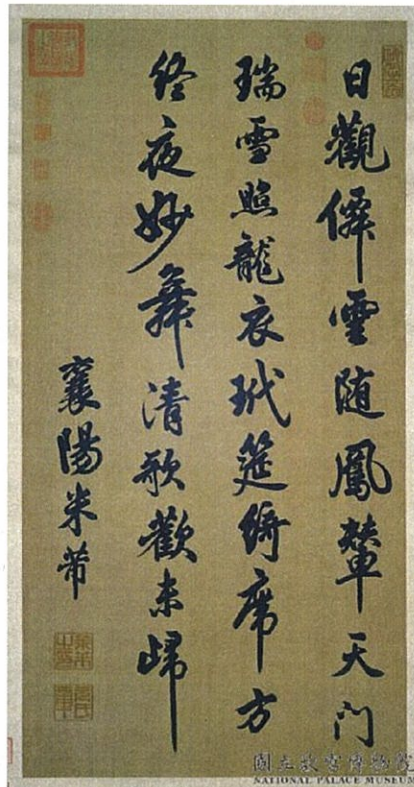 日觀僊雲随鳳輦天门
瑞雪照龍衣玳筵綺席方
终夜妙舞清歌歡未歸
襄陽米芾
國立故宮博物院
NATIONAL PALACE MUSEUM